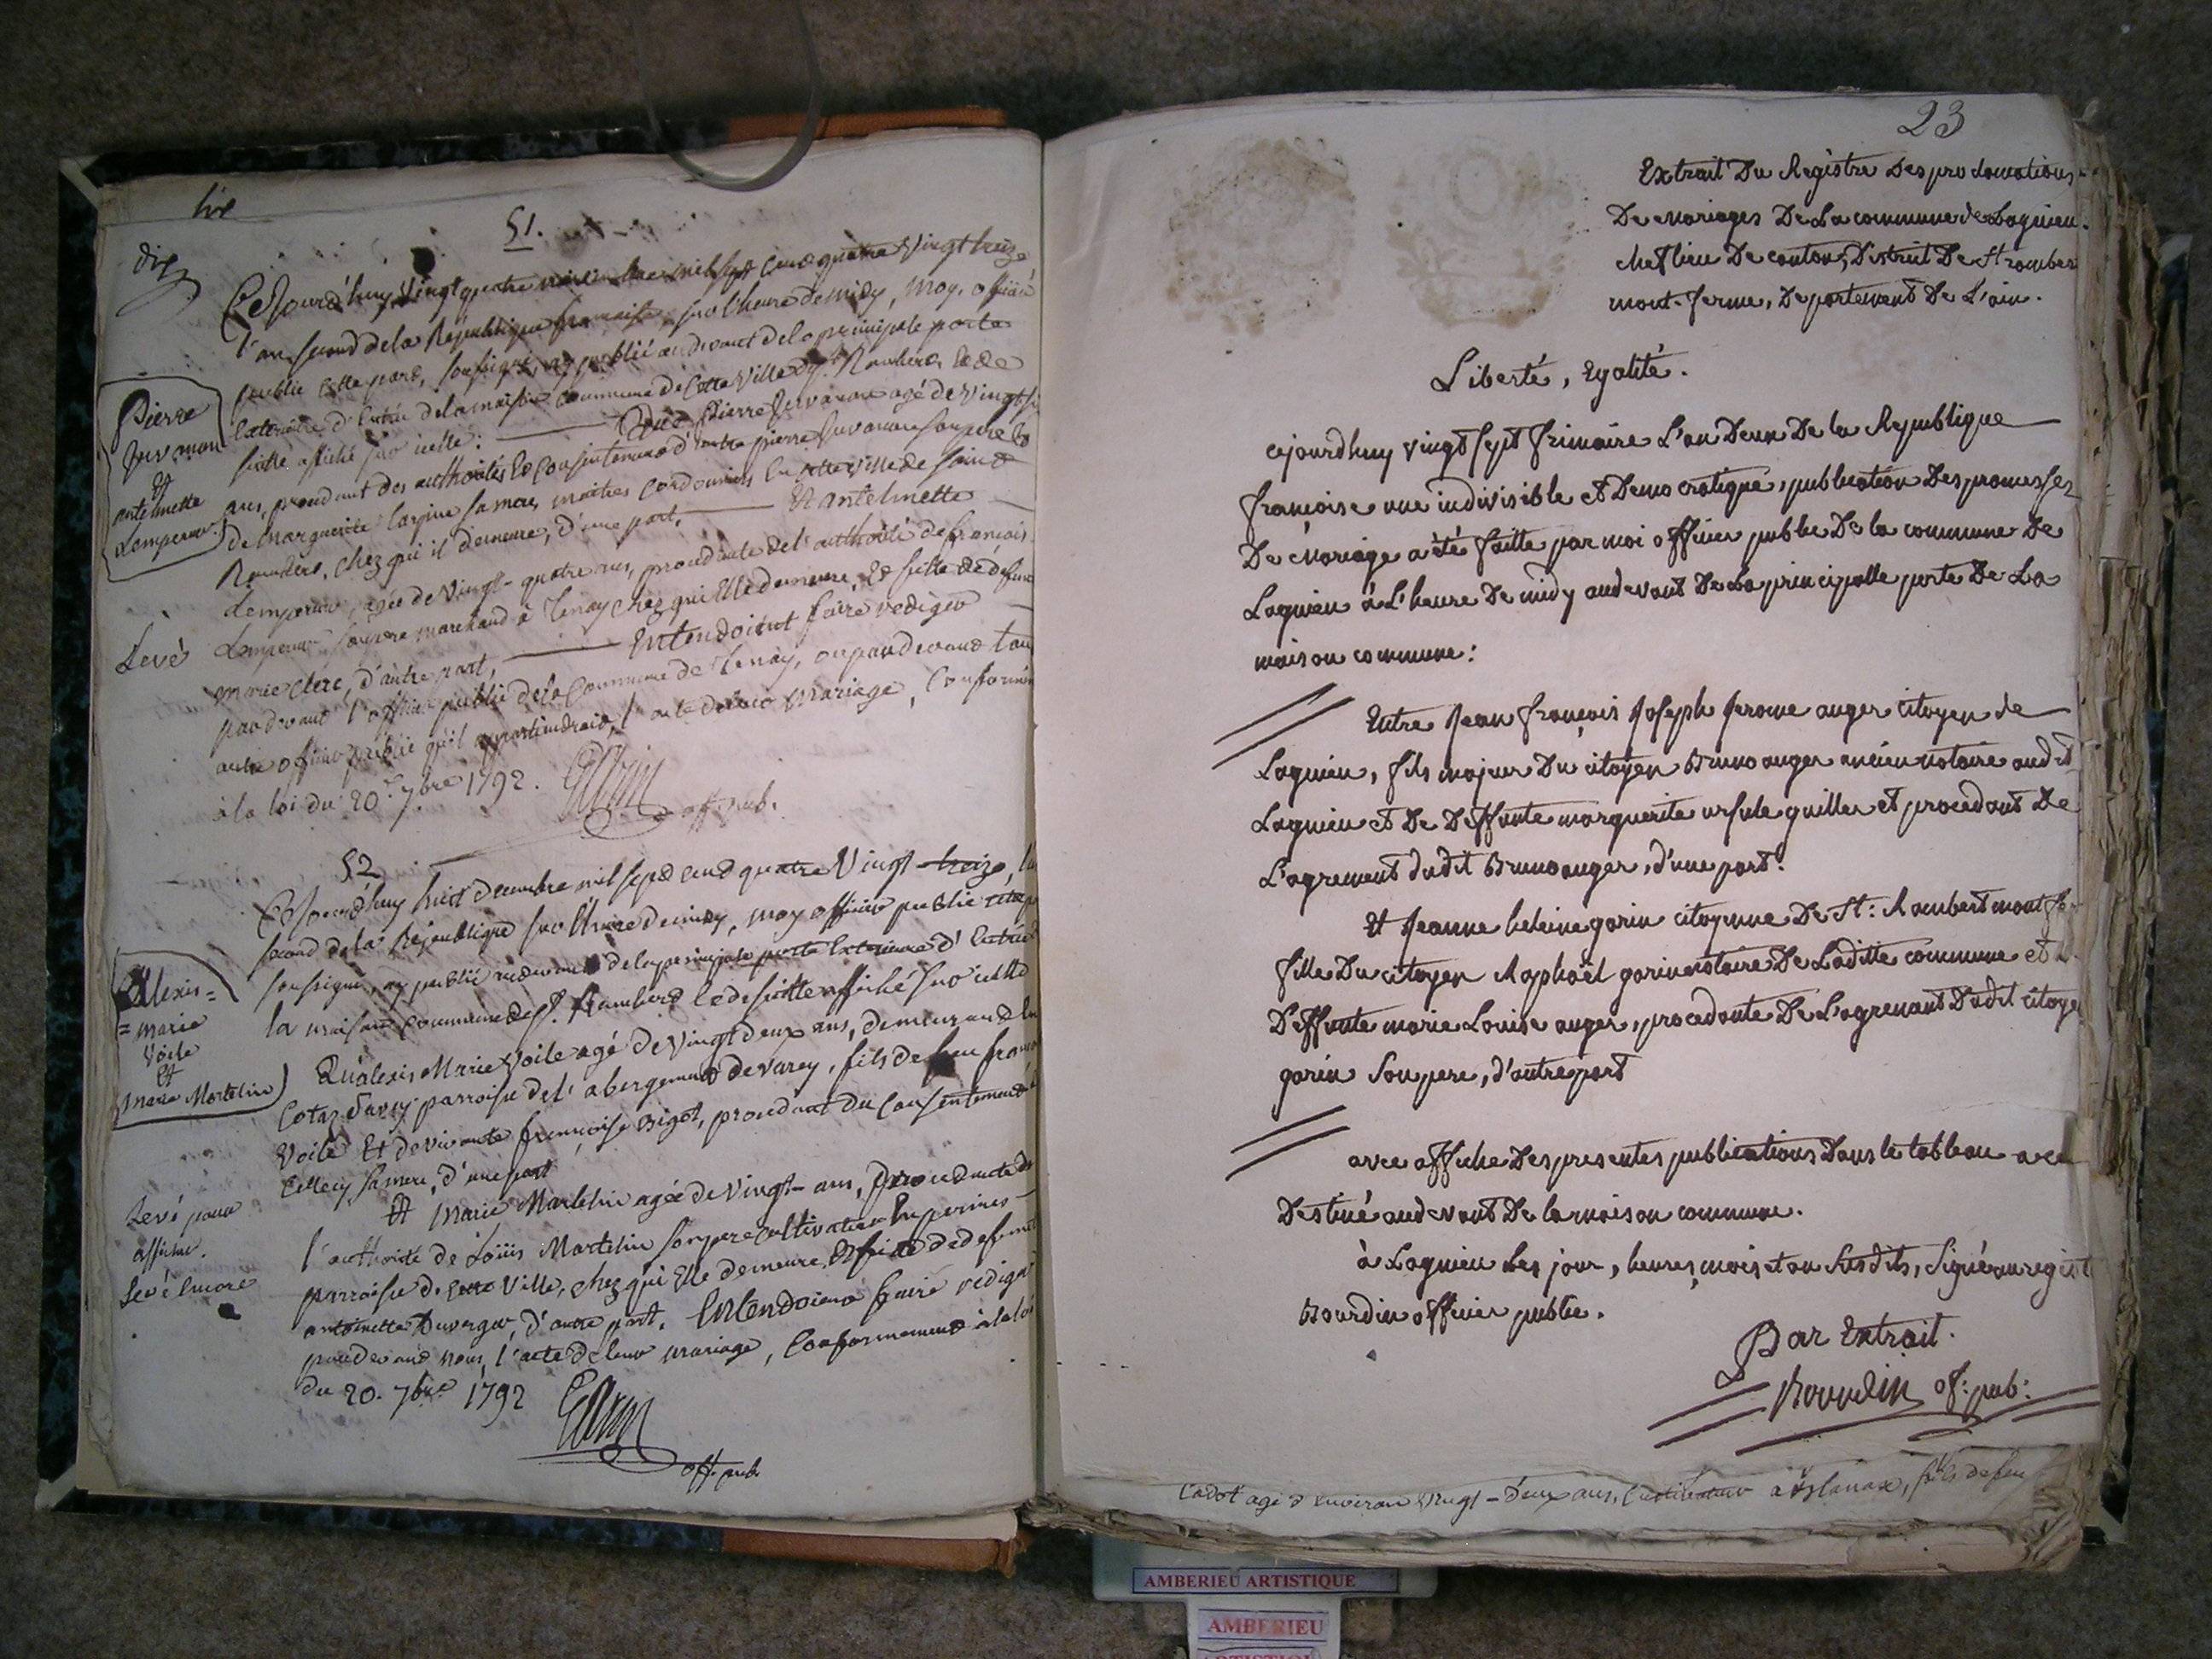 51.
Cejourd'huy vingt quatre novembre mil sept cent quatre vingt treize
l'an second de la République française, sur l'heure de midy, moy, officier
public cette part, soussigné, ay publié au devant de la principale porte
exterieure d'entrée de la maison commune de cette ville de St. Rambert, et de
suitte affiché sur icelle: Que Pierre Juvanon agé de vingt
ans, procedant des authorités et consentement d'autre pierre Juvanon son pere et
de marguerite sa mere, maitres cordonniers en cette ville de saint
Rambert, chez qui il demeure, d'une part, Et antelmette
Lempereur, agée de vingt-quatre ans, procedante de l'authorité de françois
Lempereur son pere marchand à Tenay chez qui elle demeure, et fille de defunte
marie Clerc, d'autre part, Entendoient faire rediger
pardevant l'officier public de la commune de Tenay, ou pardevant tout
autre officier public qu'il appartiendroit, l'acte de leur mariage, conformém
à la loi du 20. 7bre 1792.
off. pub.
Pierre
Juvanon
et
antelmette
Lempereur
Levé
52
Cejourd'huy huit decembre mil sept cent quatre vingt treize, l'an
second de la République sur l'heure de midy, moy officier public
soussigné, ay publié au devant de la principale porte exterieure d'entrée
la maison commune de St. Rambert et de suitte affiché sur icelle
Qu'alexis Marie Voile agé de vingt deux ans, demeurant
parroisse de l'abergement de varey, fils de feu
Voile et de vivante françoise Bigot, procedant du consentement
sa mere, d'une part
Et Marie Martelin agée de vingt ans, procedante de
l'authorité de Loüis Martelin son pere cultivateur
parroisse de cette ville, chez qui elle demeure, et fille de defunte
antoinette Duverger, d'autre part, Entendoient faire rediger
pardevant nous, l'acte de leur mariage, conformement à la loi
du 20. 7bre 1792
off. pub.
Alexis=
=marie
Voile
et
Marie Martelin
Levé pour
afficher.
Levé encore
23
Extrait Du Registre Des proclamations
De mariages De La commune de Lagnieu.
chef lieu De canton, District De St rambert
mont-ferme, Departement De L'ain.
Liberté, Egalité.
cejourdhuy vingt sept frimaire L'an Deux De la Republique
françoise une indivisible et Democratique, publication Des promesses
De Mariage a été faitte par moi officier public De la commune De
Lagnieu à L'heure De midy audevant De La principalle porte De La
maison commune:
Entre Jean françois Joseph Jerome auger citoyen de
Lagnieu, fils majeur Du citoyen Bruno auger ancien notaire audit
Lagnieu et De Deffunte marguerite ursule guiller et procedant De
L'agrement dudit Bruno auger, d'une part.
Et Jeanne heleine garin citoyenne De St: Rambert mont fer
fille Du citoyen Raphaël garin notaire De Laditte commune et
Deffunte marie Louise auger, procedante De L'agremant Dudit citoye
garin Son pere, d'autre part
avec affiche Des presentes publications Dans le tableau a ce
Destiné audevant De la maison commune.
à Lagnieu Les jour, heures, mois et an Susdits, Signé au regist
Bourdin officier public.
Par Extrait.
Bourdin of: pub:
Cadot agé d'environ vingt-deux ans, cultivateur à, fils de feu
AMBERIEU ARTISTIQUE
AMBERIEU
ARTISTIQUE